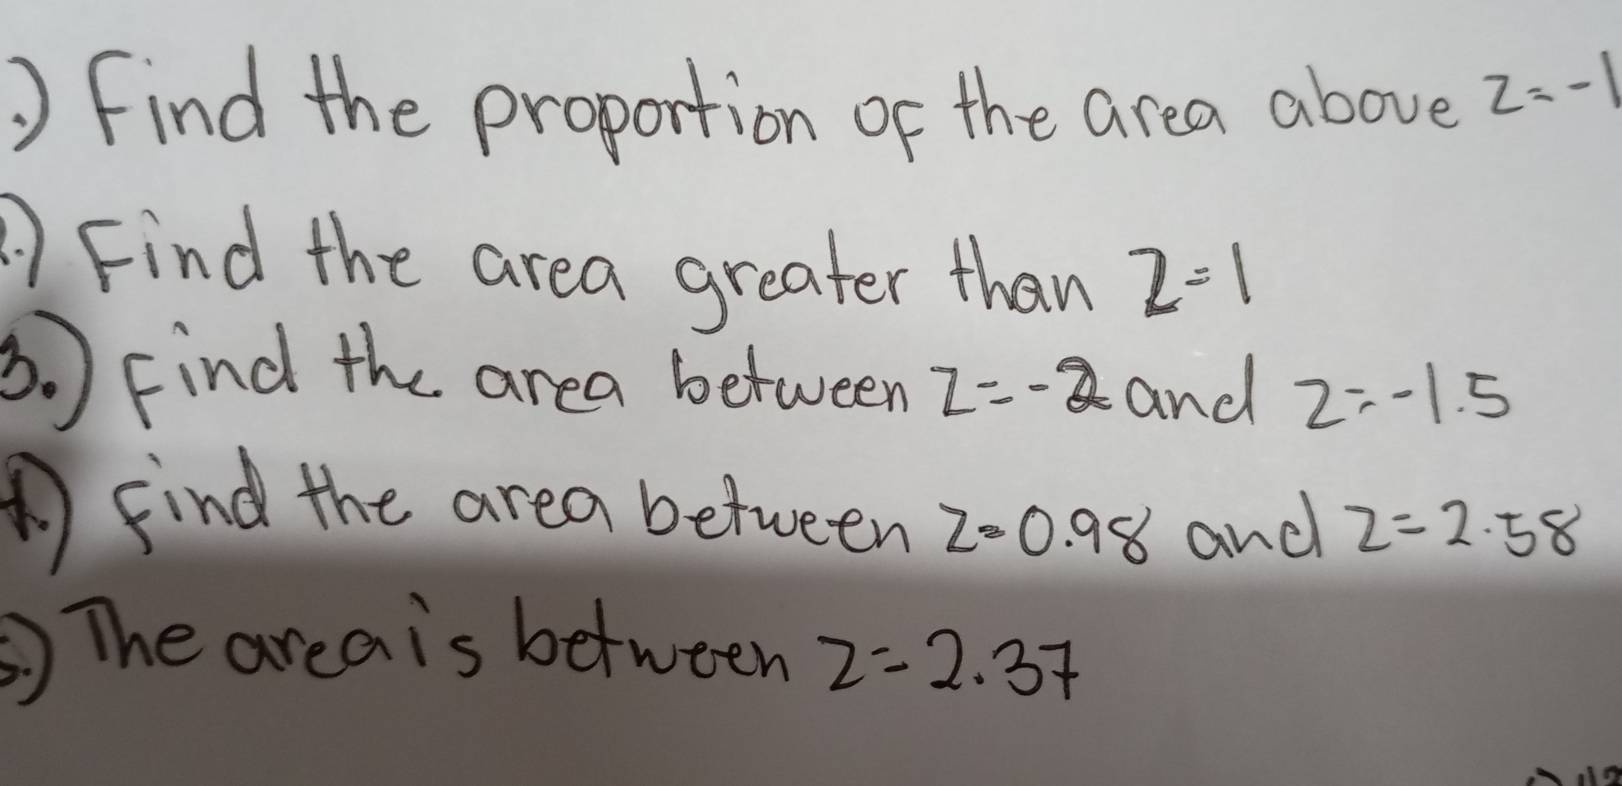 .) Find the proportion of the area above z=-1
2.) Find the area greater than z=1
3.) Find the area between z=-2 and z=-1.5
4.) Find the area between z=0.98 and z=2.58
5.) The area is between z=2.37